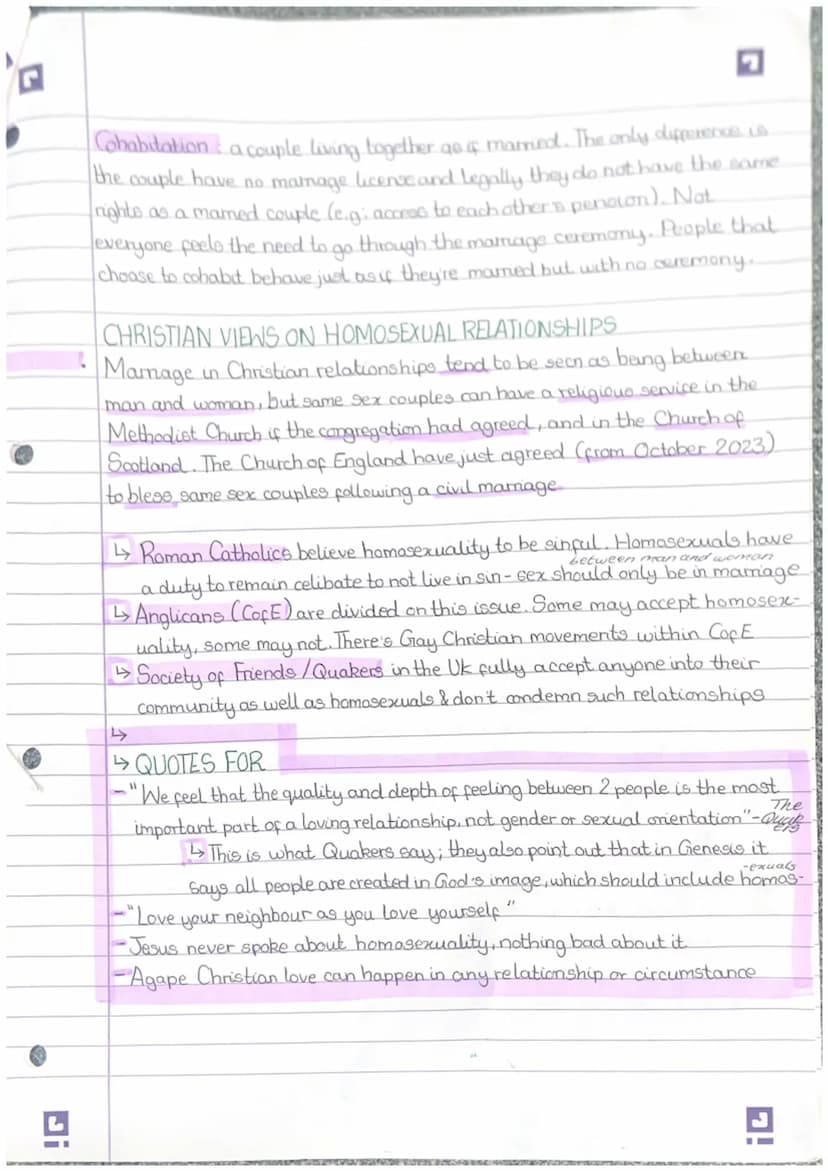 Cohabitation : a couple living together as if married. The only difference is
the couple have no marriage licence and legally they do not have the same
rights as a married couple (e.g: access to each other's pension). Not
everyone feels the need to go through the marriage ceremony. People that
choose to cohabit behave just as if they're married but with no ceremony.
CHRISTIAN VIEWS ON HOMOSEXUAL RELATIONSHIPS
Marriage in Christian relationships tend to be seen as being between
man and woman, but same sex couples can have a religious service in the
Methodist Church if the congregation had agreed, and in the Church of
Scotland. The Church of England have just agreed (from October 2023)
to bless same sex couples following a civil marriage
↳ Roman Catholics believe homosexuality to be sinful. Homosexuals have
between man and woman
a duty to remain celibate to not live in sin - sex should only be in marriage
↳ Anglicans (CofE) are divided on this issue. Some may accept homosex-
uality, some may not. There's Gay Christian movements within CofE
↳ Society of Friends / Quakers in the UK fully accept anyone into their
community as well as homosexuals & don't condemn such relationships
↳
↳ QUOTES FOR
- "We feel that the quality and depth of feeling between 2 people is the most
important part of a loving relationship, not gender or sexual orientation" - The Quakers
↳ This is what Quakers say; they also point out that in Genesis it
says all people are created in God's image, which should include homos-
-exuals
- "Love your neighbour as you love yourself"
- Jesus never spoke about homosexuality, nothing bad about it
- Agape Christian love can happen in any relationship or circumstance